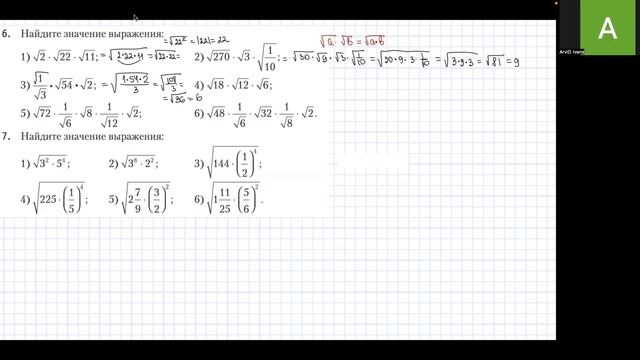 6. Найдите значение выражения:
= √22² = |22| = 22
√a · √b = √a·b
1) √2 · √22 · √11; = √2·22·11 = √22·22 =
2) √270 · √3 · √(1/10); = √30 · √9 · √3 · √(1/10) = √(30·9·3·1/10) = √(3·9·3) = √81 = 9
3) √1/√3 · √54 · √2; = √(1·54·2/3) = √(108/3) =
= √36 = 6
4) √18 · √12 · √6;
5) √72 · 1/√6 · √8 · 1/√12 · √2;
6) √48 · 1/√6 · √32 · 1/√8 · √2.
7. Найдите значение выражения:
1) √(3² · 5⁴);
2) √(3⁸ · 2²);
3) √(144 · (1/2)⁴);
4) √(225 · (1/5)⁴);
5) √(2 7/9 · (3/2)²);
6) √(1 11/25 · (5/6)²).
A